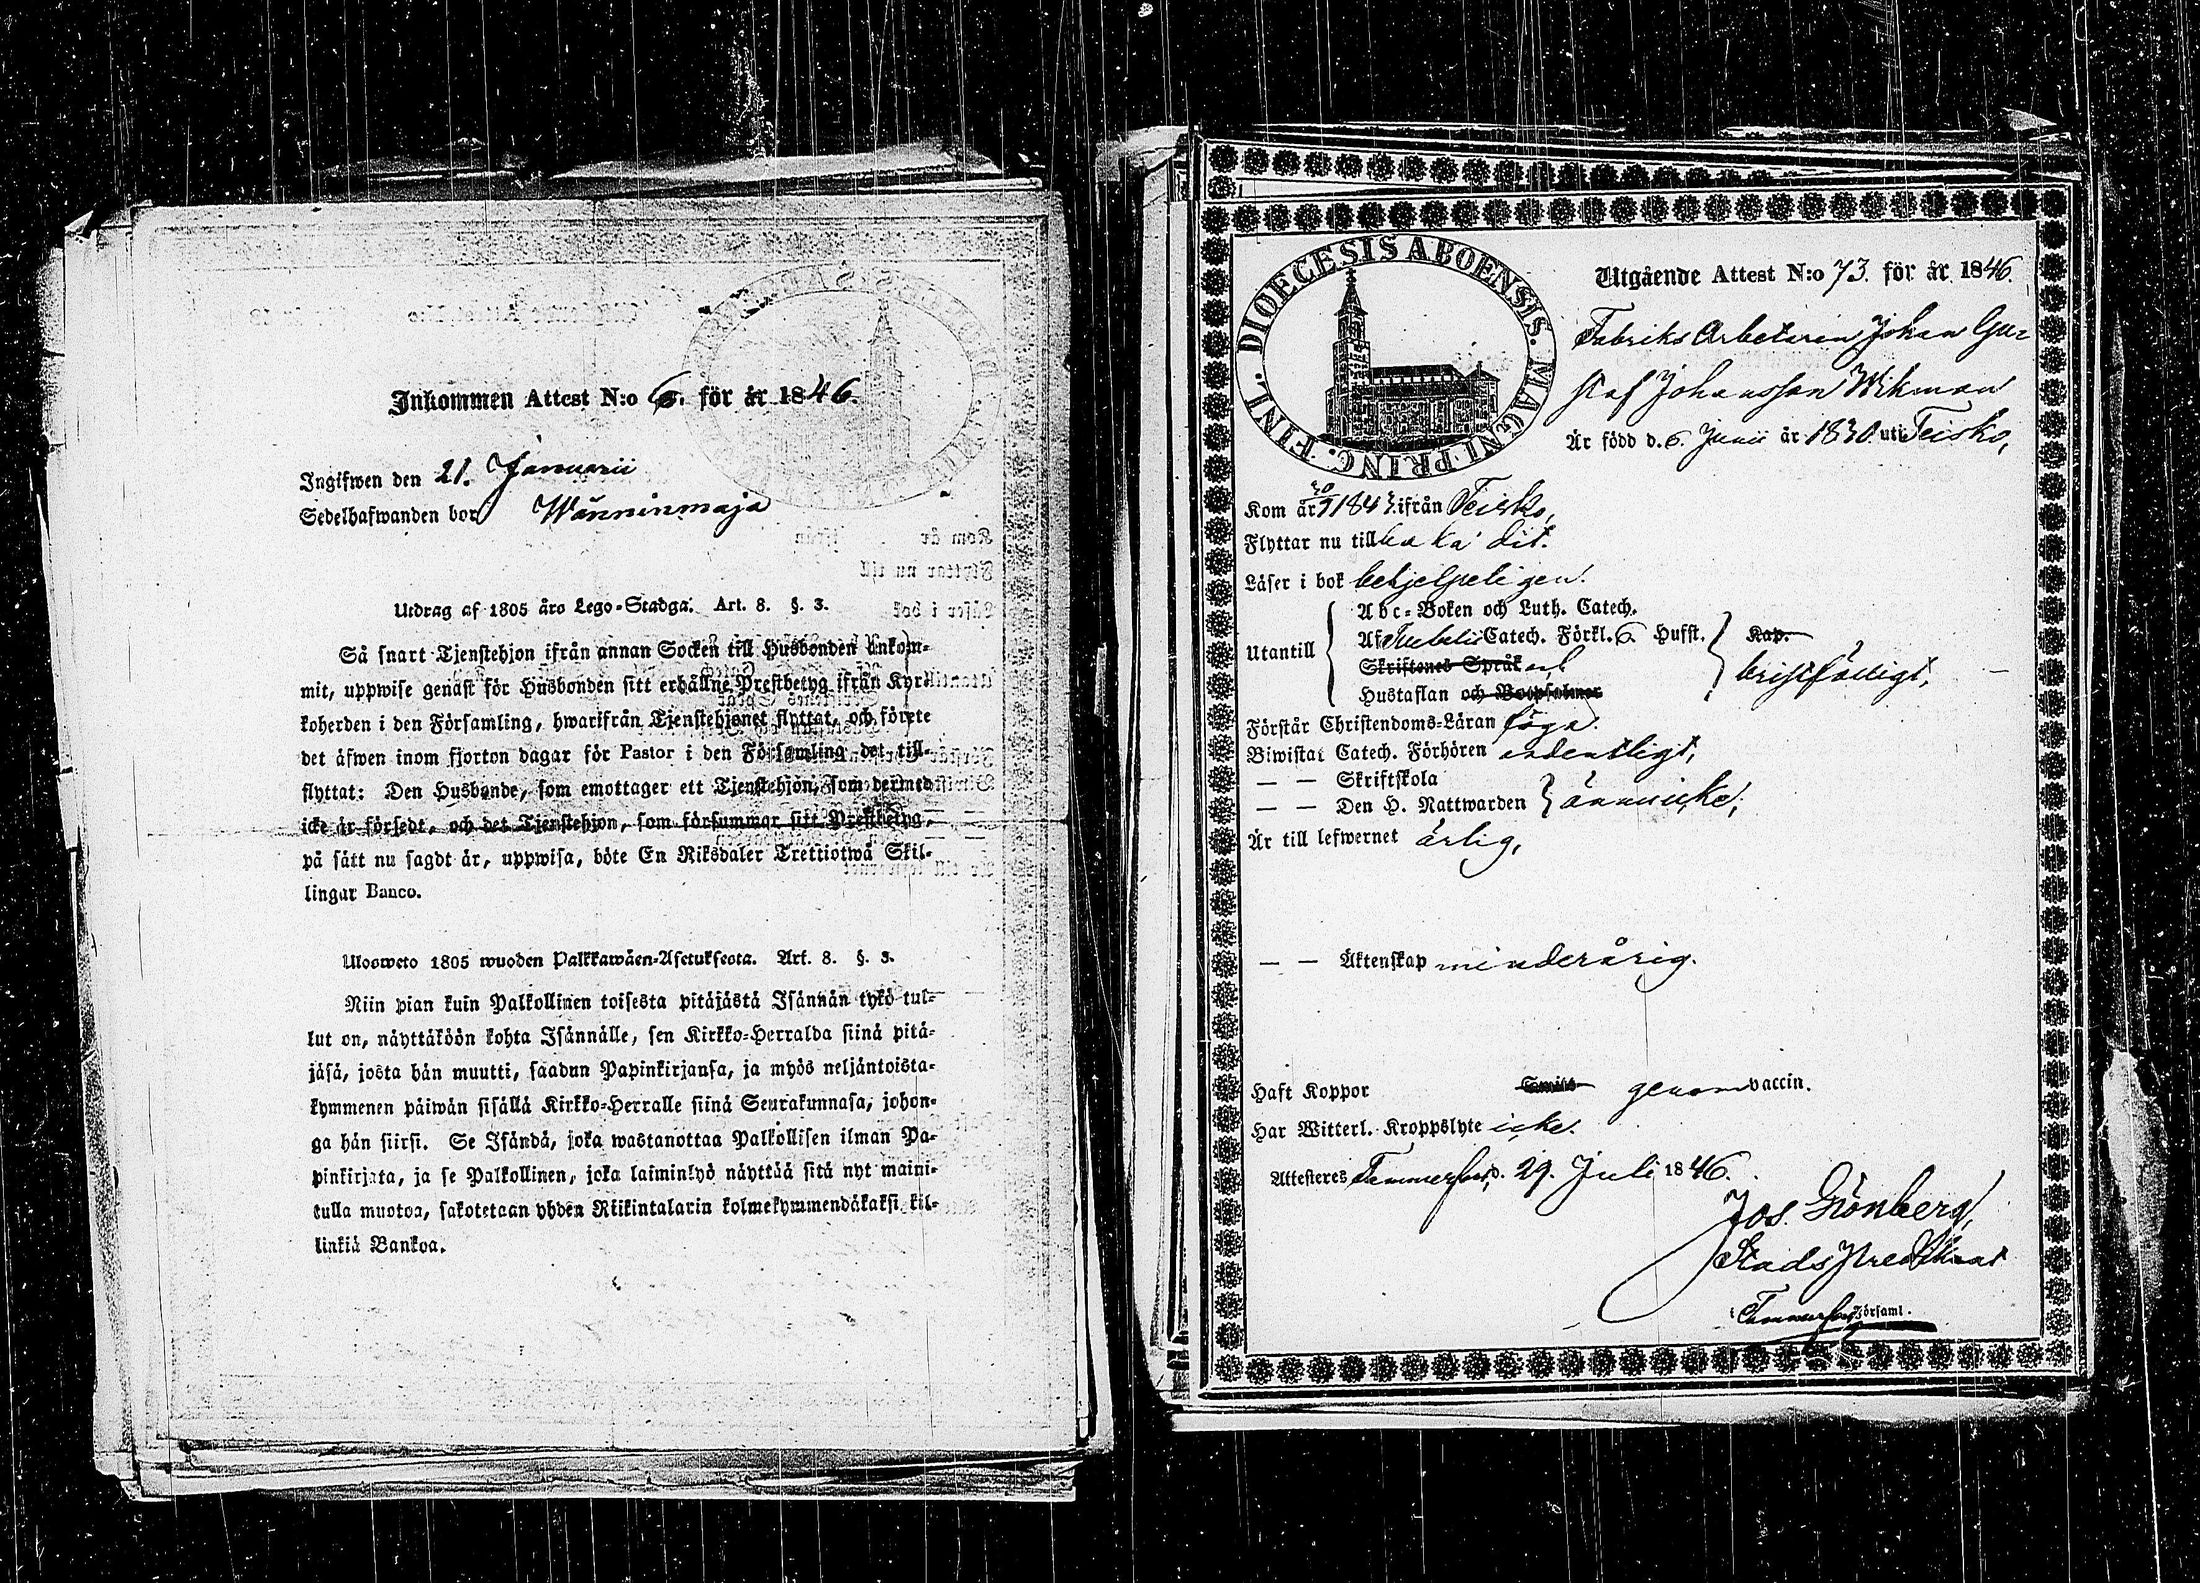 Inkommen Attest N:o 6. för år 1846.
Ingifwen den 21. Januarii
Sedelhafwanden bor Wänninmaja
Utdrag af 1805 års Lego-Stadga. Art. 8. §. 3.
Så snart Tjenstehjon ifrån annan Socken till Husbonden ankom-
mit, uppwise genast för Husbonden sitt erhållne Prestbetyg ifrån Kyr-
koherden i den Församling, hwarifrån Tjenstehjonet flyttat, och förete
det äfwen inom fjorton dagar för Pastor i den Församling det till-
flyttat: Den Husbonde, som emottager ett Tjenstehjon, som dermed
icke är försedt, och det Tjenstehjon, som försummar sitt Prestbetyg,
på sätt nu sagdt är, uppwisa, böte En Riksdaler Trettiotwå Skil-
lingar Banco.
Ulosweto 1805 wuoden Palkkawäen-Asetuksesta. Art. 8. §. 3.
Niin pian kuin Palkollinen toisesta pitäjästä Isännän tykö tul-
lut on, näyttäköön kohta Isännälle, sen Kirkko-Herralda siinä pitä-
jäsä, josta hän muutti, saadun Papinkirjansa, ja myös neljäntoista-
kymmenen päiwän sisällä Kirkko-Herralle siinä Seurakunnasa, johon-
ga hän siirsi. Se Isändä, joka wastanottaa Palkollisen ilman Pa-
pinkirjata, ja se Palkollinen, joka laiminlyö näyttää sitä nyt maini-
tulla muotoa, sakotetaan yhden Riikintalarin kolmekymmendäkaksi kil-
linkiä Bankoa.
DIOECESIS ABOENSIS. MAGNI PRINC. FINL.
Utgående Attest N:o 73. för år 1846.
Fabriks Arbetaren Johan Gu-
staf Johansson Wikman
Är född d. 6. Junii år 1830. uti Teisko,
Kom år 30/9 1843. ifrån Teisko,
Flyttar nu tillbaka dit.
Läser i bok behjelpeligen.
Abc-Boken och Luth. Catech.
Utantill Af Catech. Förkl. 6. Hufst. Kap.
Skriftenes Språk och bristfälligt,
Hustaflan och Botpsalmer
Förstår Christendoms-Läran föga.
Biwistat Catech. Förhören ordentligt,
— — Skriftskola
— — Den H. Nattwarden ännu icke,
Är till lefwernet ärlig,
— — Äktenskap minderårig.
Haft Koppor genom vaccin.
Har Witterl. Kroppslyte icke.
Attesteres Tammerfors, d. 29. Juli 1846.
Jos. Grönberg,
Stads Predikant
i Tammerfors Församl.